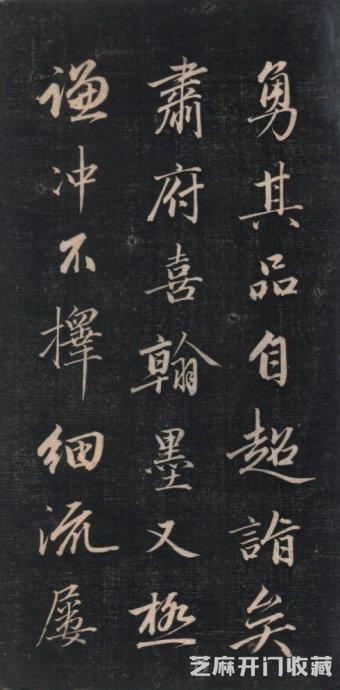 勇其品自超詣矣
肅府喜翰墨又極
謙冲不擇細流屡
芝麻开门收藏